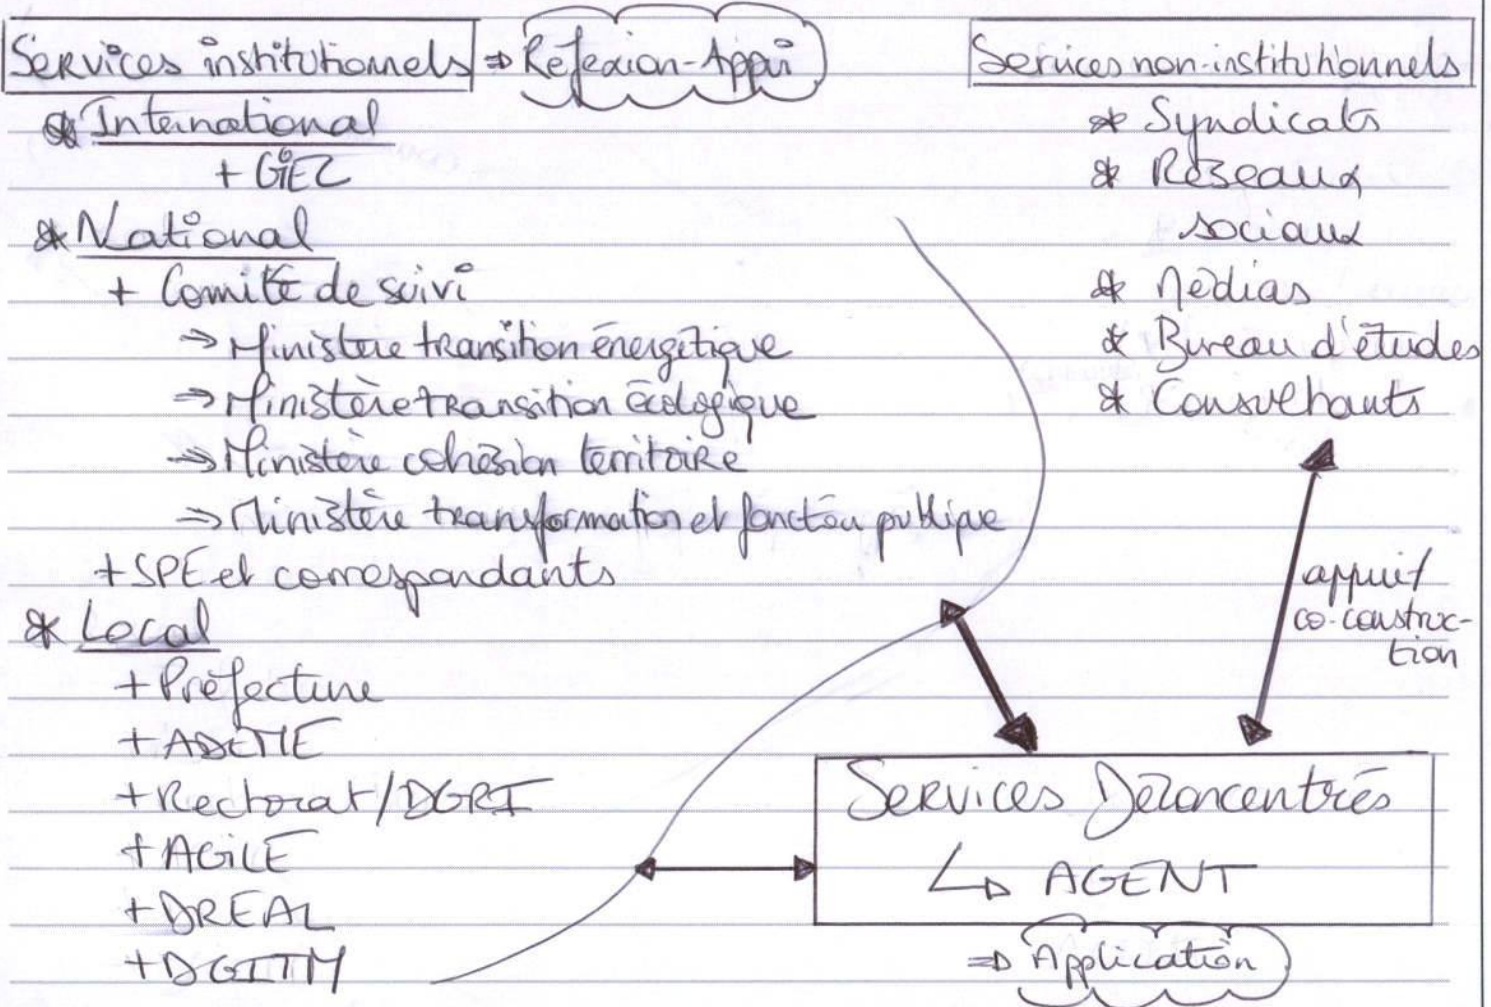 Services institutionnels ⇒ Réflexion-Appui
* International
+ GIEC
* National
+ Comité de suivi
→ Ministère transition énergétique
→ Ministère transition écologique
→ Ministère cohésion territoire
→ Ministère transformation et fonction publique
+ SPE et correspondants
* Local
+ Préfecture
+ ADEME
+ Rectorat/DGRI
+ AGILE
+ DREAL
+ DGITM
Services non-institutionnels
* Syndicats
* Réseaux
sociaux
* Médias
* Bureau d'études
* Consultants
appuit
co-construc-
tion
Services Déconcentrés
↳ AGENT
⇒ Application